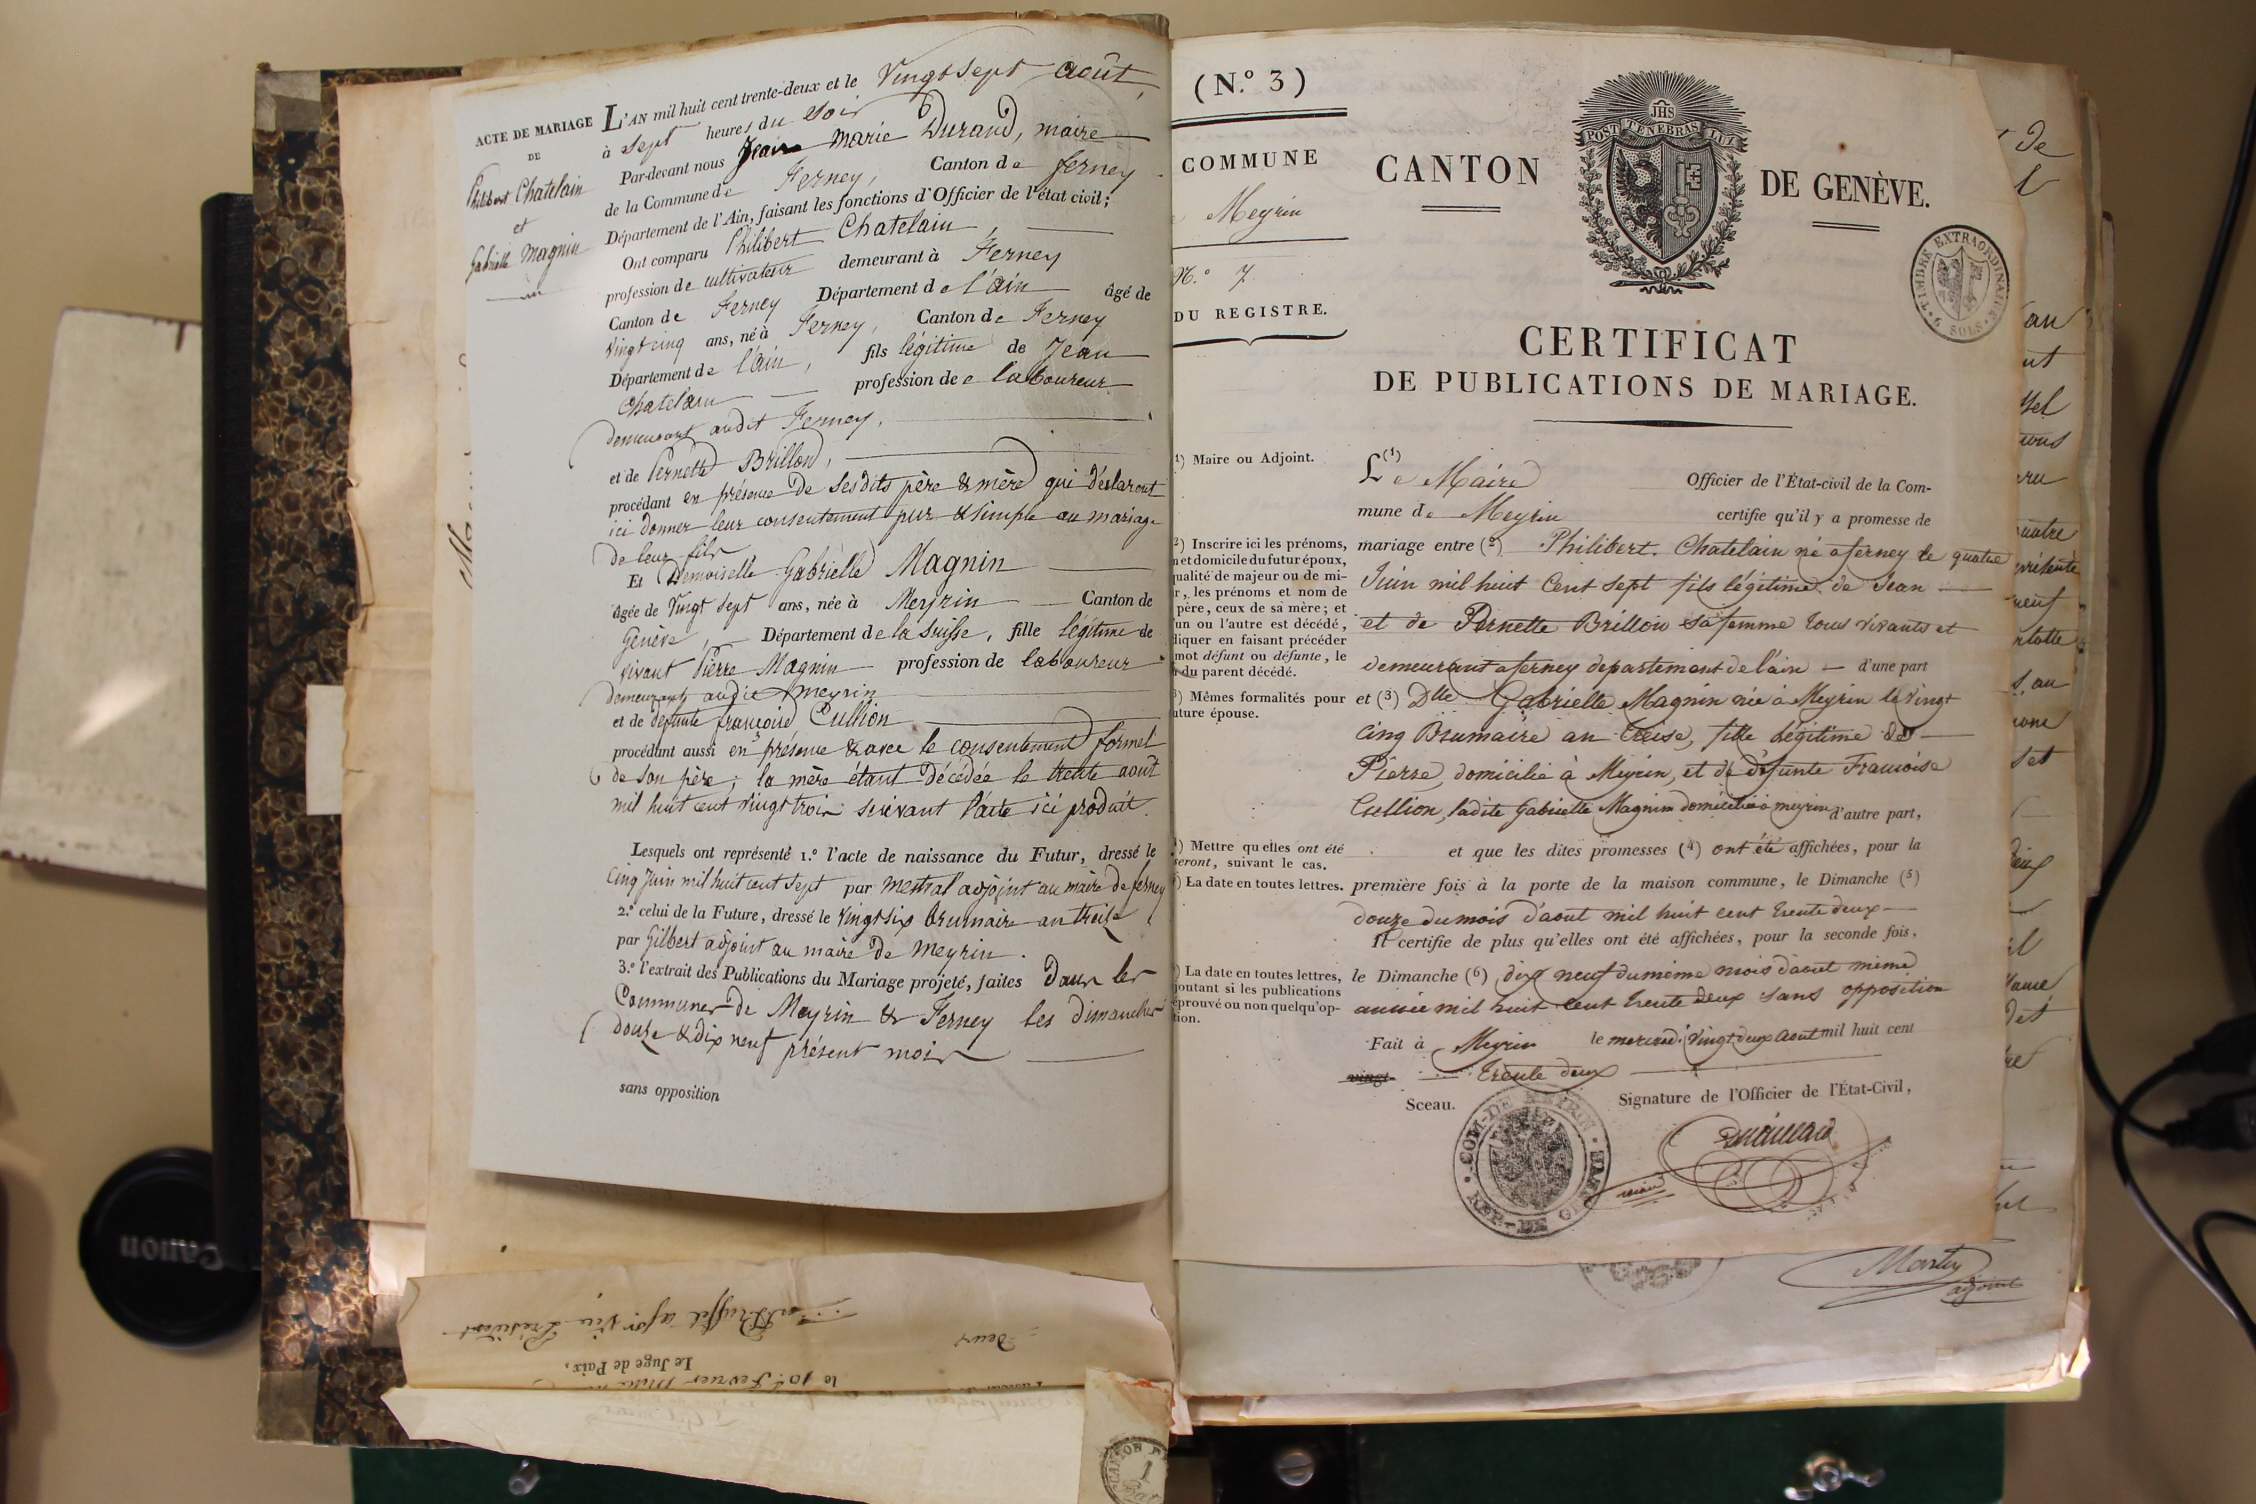 ACTE DE MARIAGE
DE
Philibert Chatelain
et
Gabrielle Magnin
L'AN mil huit cent trente-deux et le Vingt sept août,
à sept heures du soir
Par-devant nous Jean Marie Durand, maire
de la Commune de Ferney, Canton de ferney
Département de l'Ain, faisant les fonctions d'Officier de l'état civil;
Ont comparu Philibert Chatelain,
profession de cultivateur demeurant à Ferney
Canton de Ferney Département de l'ain âgé de
vingt cinq ans, né à Ferney, Canton de Ferney
Département de l'ain, fils légitime de Jean
Chatelain profession de laboureur
demeurant audit Ferney,
et de Pernette Brillon,
procédant en présence de ses dits père & mère qui déclarent
ici donner leur consentement pur & simple au mariage
de leur fils
Et Demoiselle Gabrielle Magnin
âgée de Vingt sept ans, née à Meyrin Canton de
Genève, Département de la Suisse, fille légitime de
vivant Pierre Magnin profession de laboureur
demeurant audit Meyrin
et de défunte françoise Cullion
procédant aussi en présence & avec le consentement formel
de son père; la mère étant décédée le trente aout
mil huit cent vingt trois suivant l'acte ici produit.
Lesquels ont représenté 1.º l'acte de naissance du Futur, dressé le
Cinq Juin mil huit cent sept par Mestral adjoint au maire de ferney
2.º celui de la Future, dressé le vingt six brumaire an treize
par Gilbert adjoint au maire de Meyrin.
3.º l'extrait des Publications du Mariage projeté, faites Dans les
Communes de Meyrin & Ferney les dimanches
douze & dix neuf présent mois
sans opposition
(N.º 3)
COMMUNE
Meyrin
N.º 7
DU REGISTRE.
CANTON DE GENÈVE.
JHS
POST TENEBRAS LUX
TIMBRE EXTRAORDINAIRE
9 SOLS
CERTIFICAT
DE PUBLICATIONS DE MARIAGE.
1) Maire ou Adjoint.
Le (1) Maire Officier de l'État-civil de la Com-
mune de Meyrin certifie qu'il y a promesse de
mariage entre (2) Philibert Chatelain né a ferney le quatre
Juin mil huit Cent Sept fils légitime de Jean
et de Pernette Brillon sa femme tous vivants et
demeurant a ferney departement de l'ain d'une part
et (3) Dlle Gabrielle Magnin née à Meyrin le vingt
cinq Brumaire an treise, fille Légitime de
Pierre, domicilié à Meyrin, et de défunte Francoise
Cullion, ladite Gabrielle Magnin domiciliée a meyrin d'autre part,
et que les dites promesses (4) ont été affichées, pour la
première fois à la porte de la maison commune, le Dimanche (5)
douze du mois d'aout mil huit cent trente deux
Il certifie de plus qu'elles ont été affichées, pour la seconde fois,
le Dimanche (6) dix neuf du même mois d'aout même
année mil huit cent trente deux sans opposition
Fait à Meyrin le mercredi vingt deux aout mil huit cent
vingt trente deux
Sceau.
Signature de l'Officier de l'État-Civil,
maire
COM. DE MEYRIN
REP. DE
2) Inscrire ici les prénoms,
et domicile du futur époux,
qualité de majeur ou de mi-
r, les prénoms et nom de
père, ceux de sa mère; et
un ou l'autre est décédé,
diquer en faisant précéder
mot défunt ou défunte, le
du parent décédé.
3) Mêmes formalités pour
uture épouse.
4) Mettre qu'elles ont été
seront, suivant le cas.
5) La date en toutes lettres.
6) La date en toutes lettres,
joutant si les publications
éprouvé ou non quelqu'op-
tion.
Martin
adjoint
Le Juge de Paix,
Canon